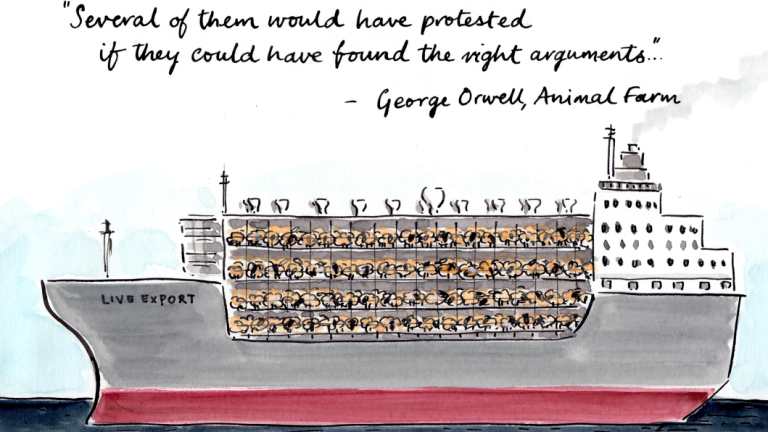 "Several of them would have protested
if they could have found the right arguments..."
- George Orwell, Animal Farm
LIVE EXPORT